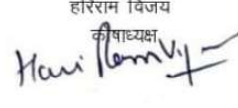 हरिराम विजय
कोषाध्यक्ष
Hari Ram Vij